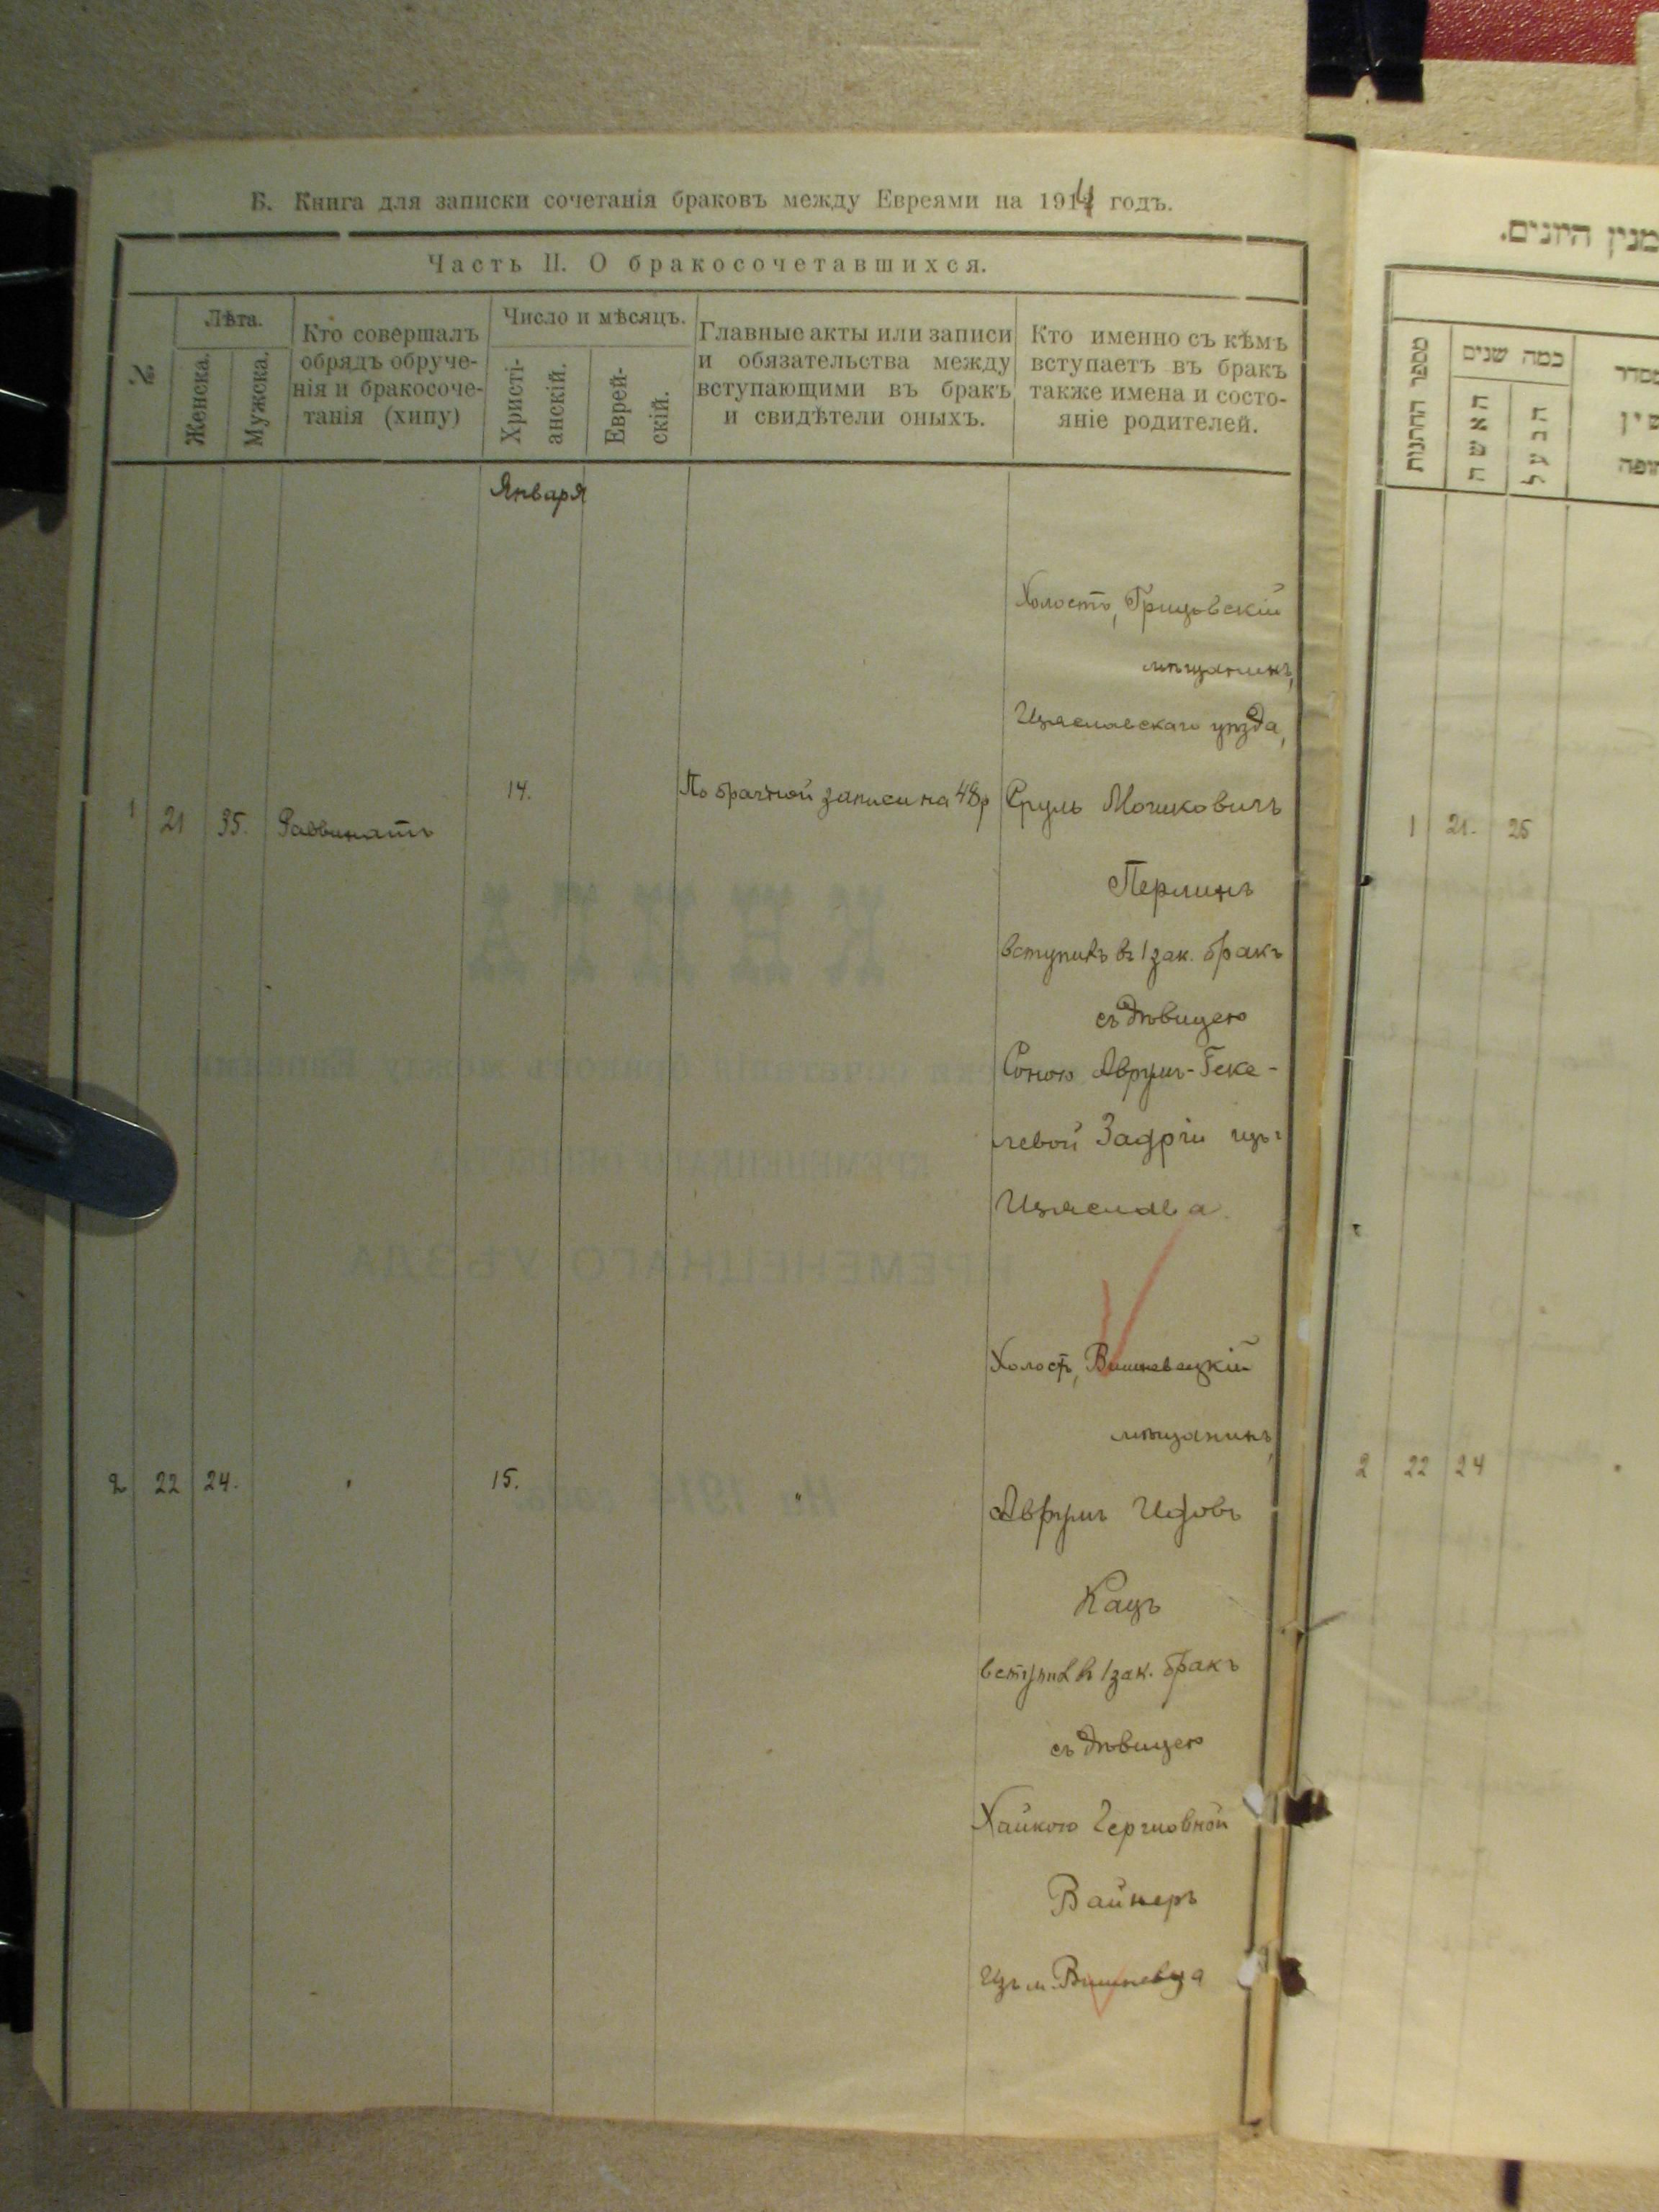 Б. Книга для записки сочетанія браковъ между Евреями на 1914 годъ.
Часть II. О бракосочетавшихся.
№
Лѣта.
Женска.
Мужска.
Кто совершалъ
обрядъ обруче-
нія и бракосоче-
танія (хипу)
Число и мѣсяцъ.
Христі-
анскій.
Еврей-
скій.
Главные акты или записи
и обязательства между
вступающими въ бракъ
и свидѣтели оныхъ.
Кто именно съ кѣмъ
вступаетъ въ бракъ
также имена и состо-
яніе родителей.
Января
Холостъ, Грицовскій
мѣщанинъ,
Изяславскаго уѣзда,
1 21 35. Раввинатъ 14. По брачной записи на 48 р Сруль Мошковичъ
Перлинъ
вступилъ въ 1 зак. бракъ
съ дѣвицею
Сонею Аврумъ-
левой изъ г
Изяслава.
Холостъ, Вишневецкій
мѣщанинъ
2 22 24. " 15. " Аврумъ
Кацъ
вступилъ въ 1 зак. бракъ
съ дѣвицею
Хайкою
Вайнеръ
изъ м. Вишневца
מנין היונים.
מספר החתנות
כמה שנים
האשה
הבעל
1 21. 25
2 22 24